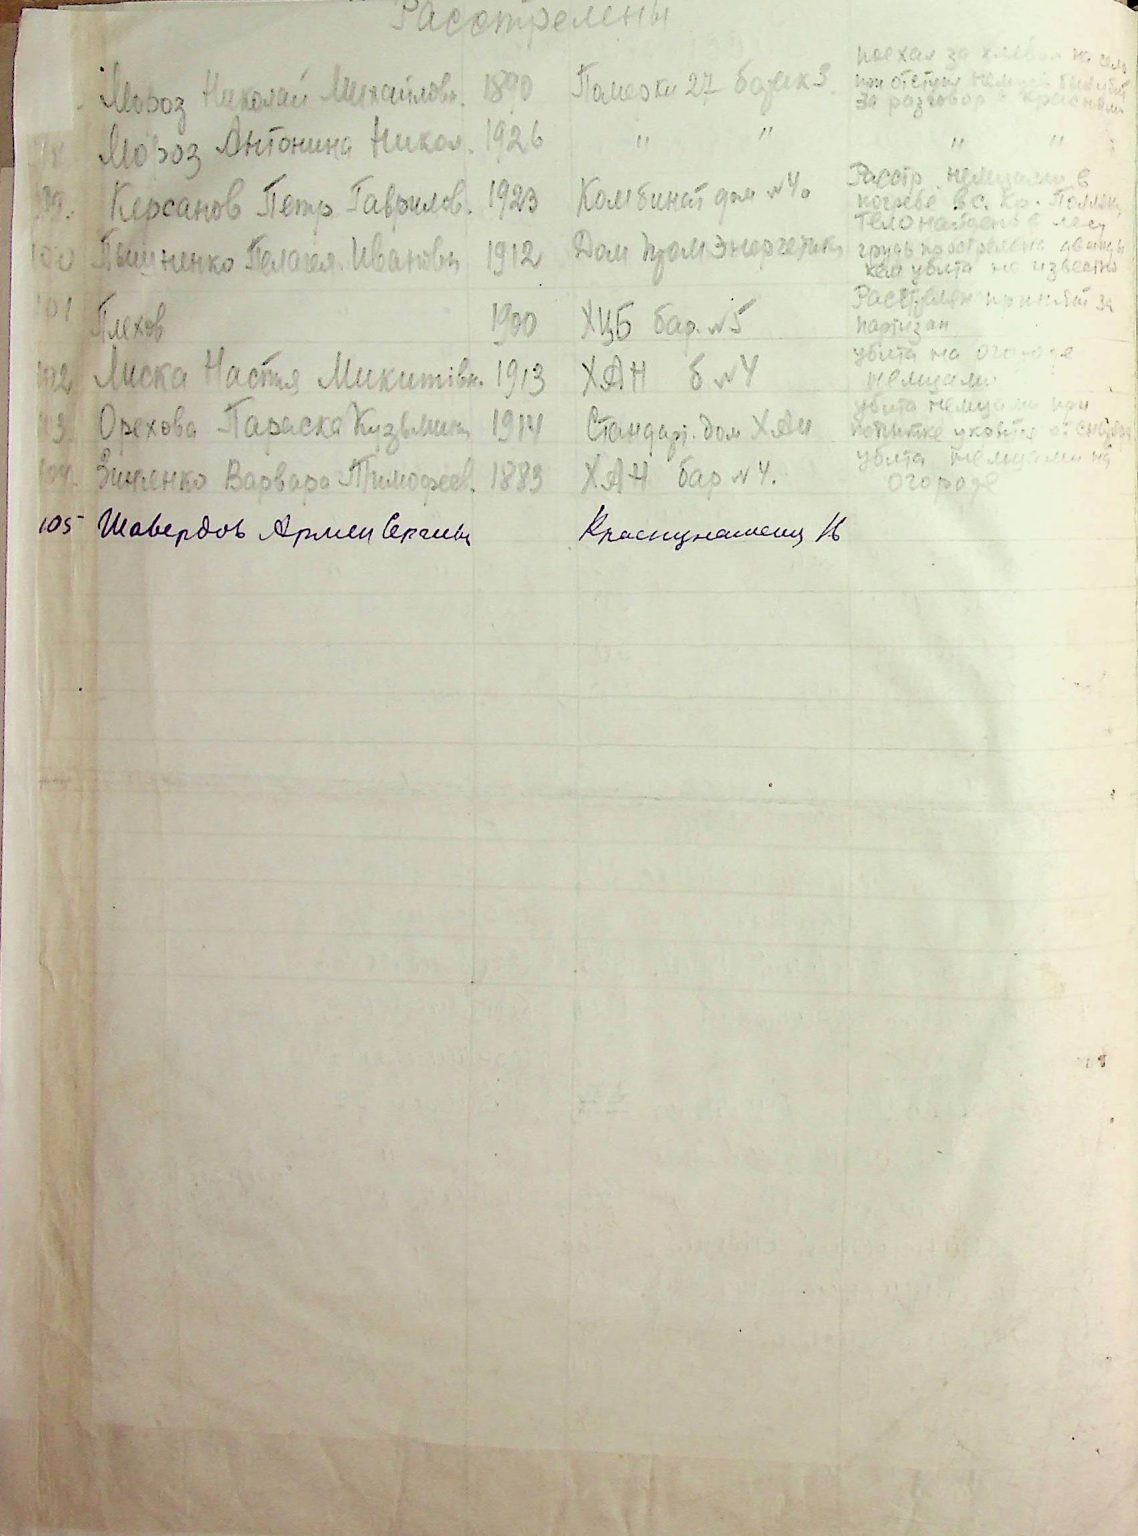 Расстрелены
Мороз Николай Михайлов. 1890 Померки 27 барак 3. поехал за хлебом на село
при отступл. немцев
за разговор с красным
Мороз Антонина Никол. 1926 " " " "
99. Керсанов Петр Гаврилов. 1923 Комбинат дом №4. Расстр. немцами в
погребе в с. Кр. Поляна
100 Пелагея Ивановн 1912 Дом Промэнергетики тело найдено в лесу
грудь прострелена
кем убита не известно
101 Плехов 1900 ХЦБ бар. №5 Расстрелен принят за
партизан
102 Лиска Настя Микитівн. 1913 ХАИ б №4 убита на огороде
немцами
103. Орехова Параска Кузьмин 1914 Стандарт. дом ХАИ убита немцами при
попытке
104. Варвара Тимофеев. 1883 ХАИ бар №4. убита немцами на
огороде
105 Шавердов Армен Сергеев Краснознаменн 16